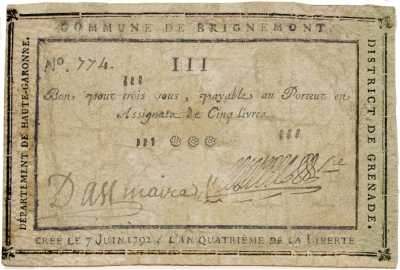 COMMUNE DE BRIGNEMONT
DÉPARTEMENT DE HAUTE-GARONNE.
DISTRICT DE GRENADE.
No. 774.
III
Bon pour trois sous, payable au Porteur en
Assignats de Cinq livres.
Dast maire
CRÉE LE 7 JUIN 1792 L'AN QUATRIÈME DE LA LIBERTÉ